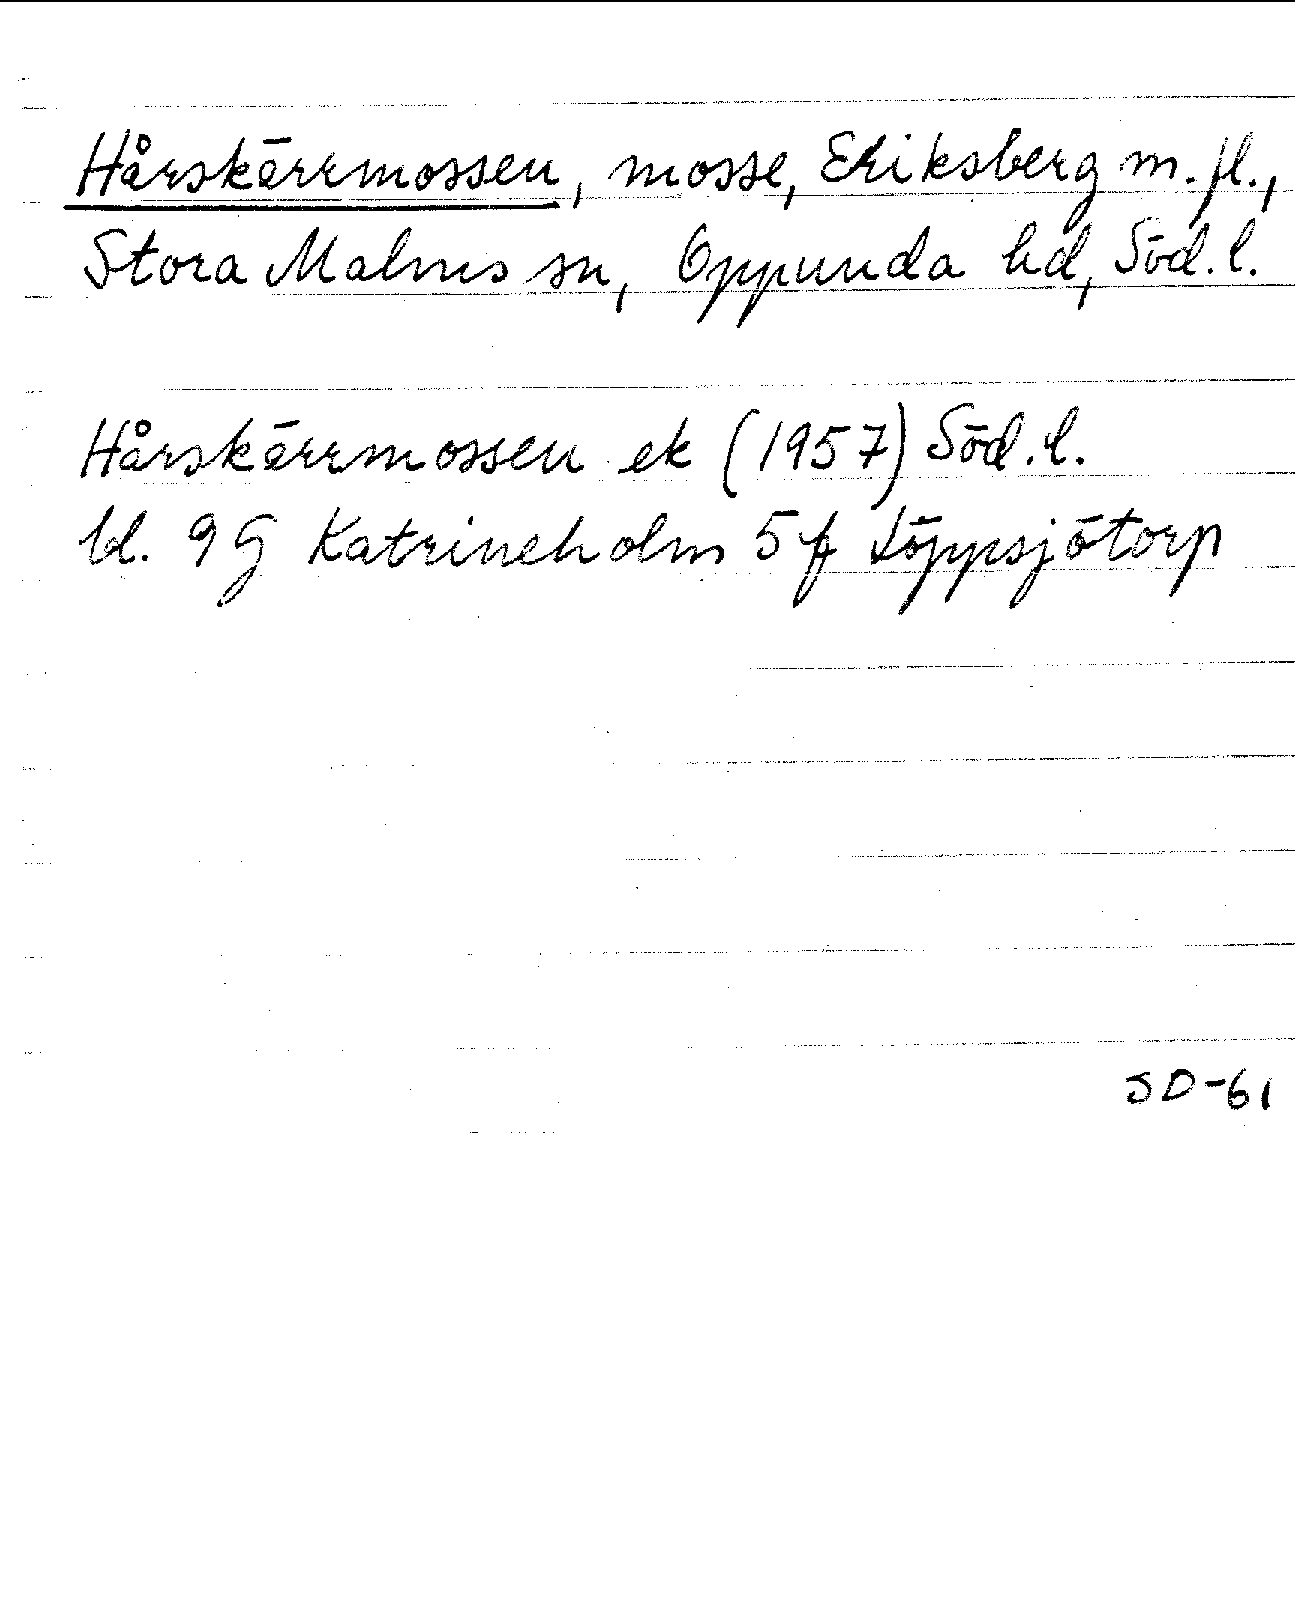 Hårskärrmossen, mosse, Eriksberg m.fl.,
Stora Malms sn, Oppunda hd, Söd.l.
Hårskärrmossen ek (1957) Söd.l.
bl. 9G Katrineholm 5f Löppsjötorp
SD-61